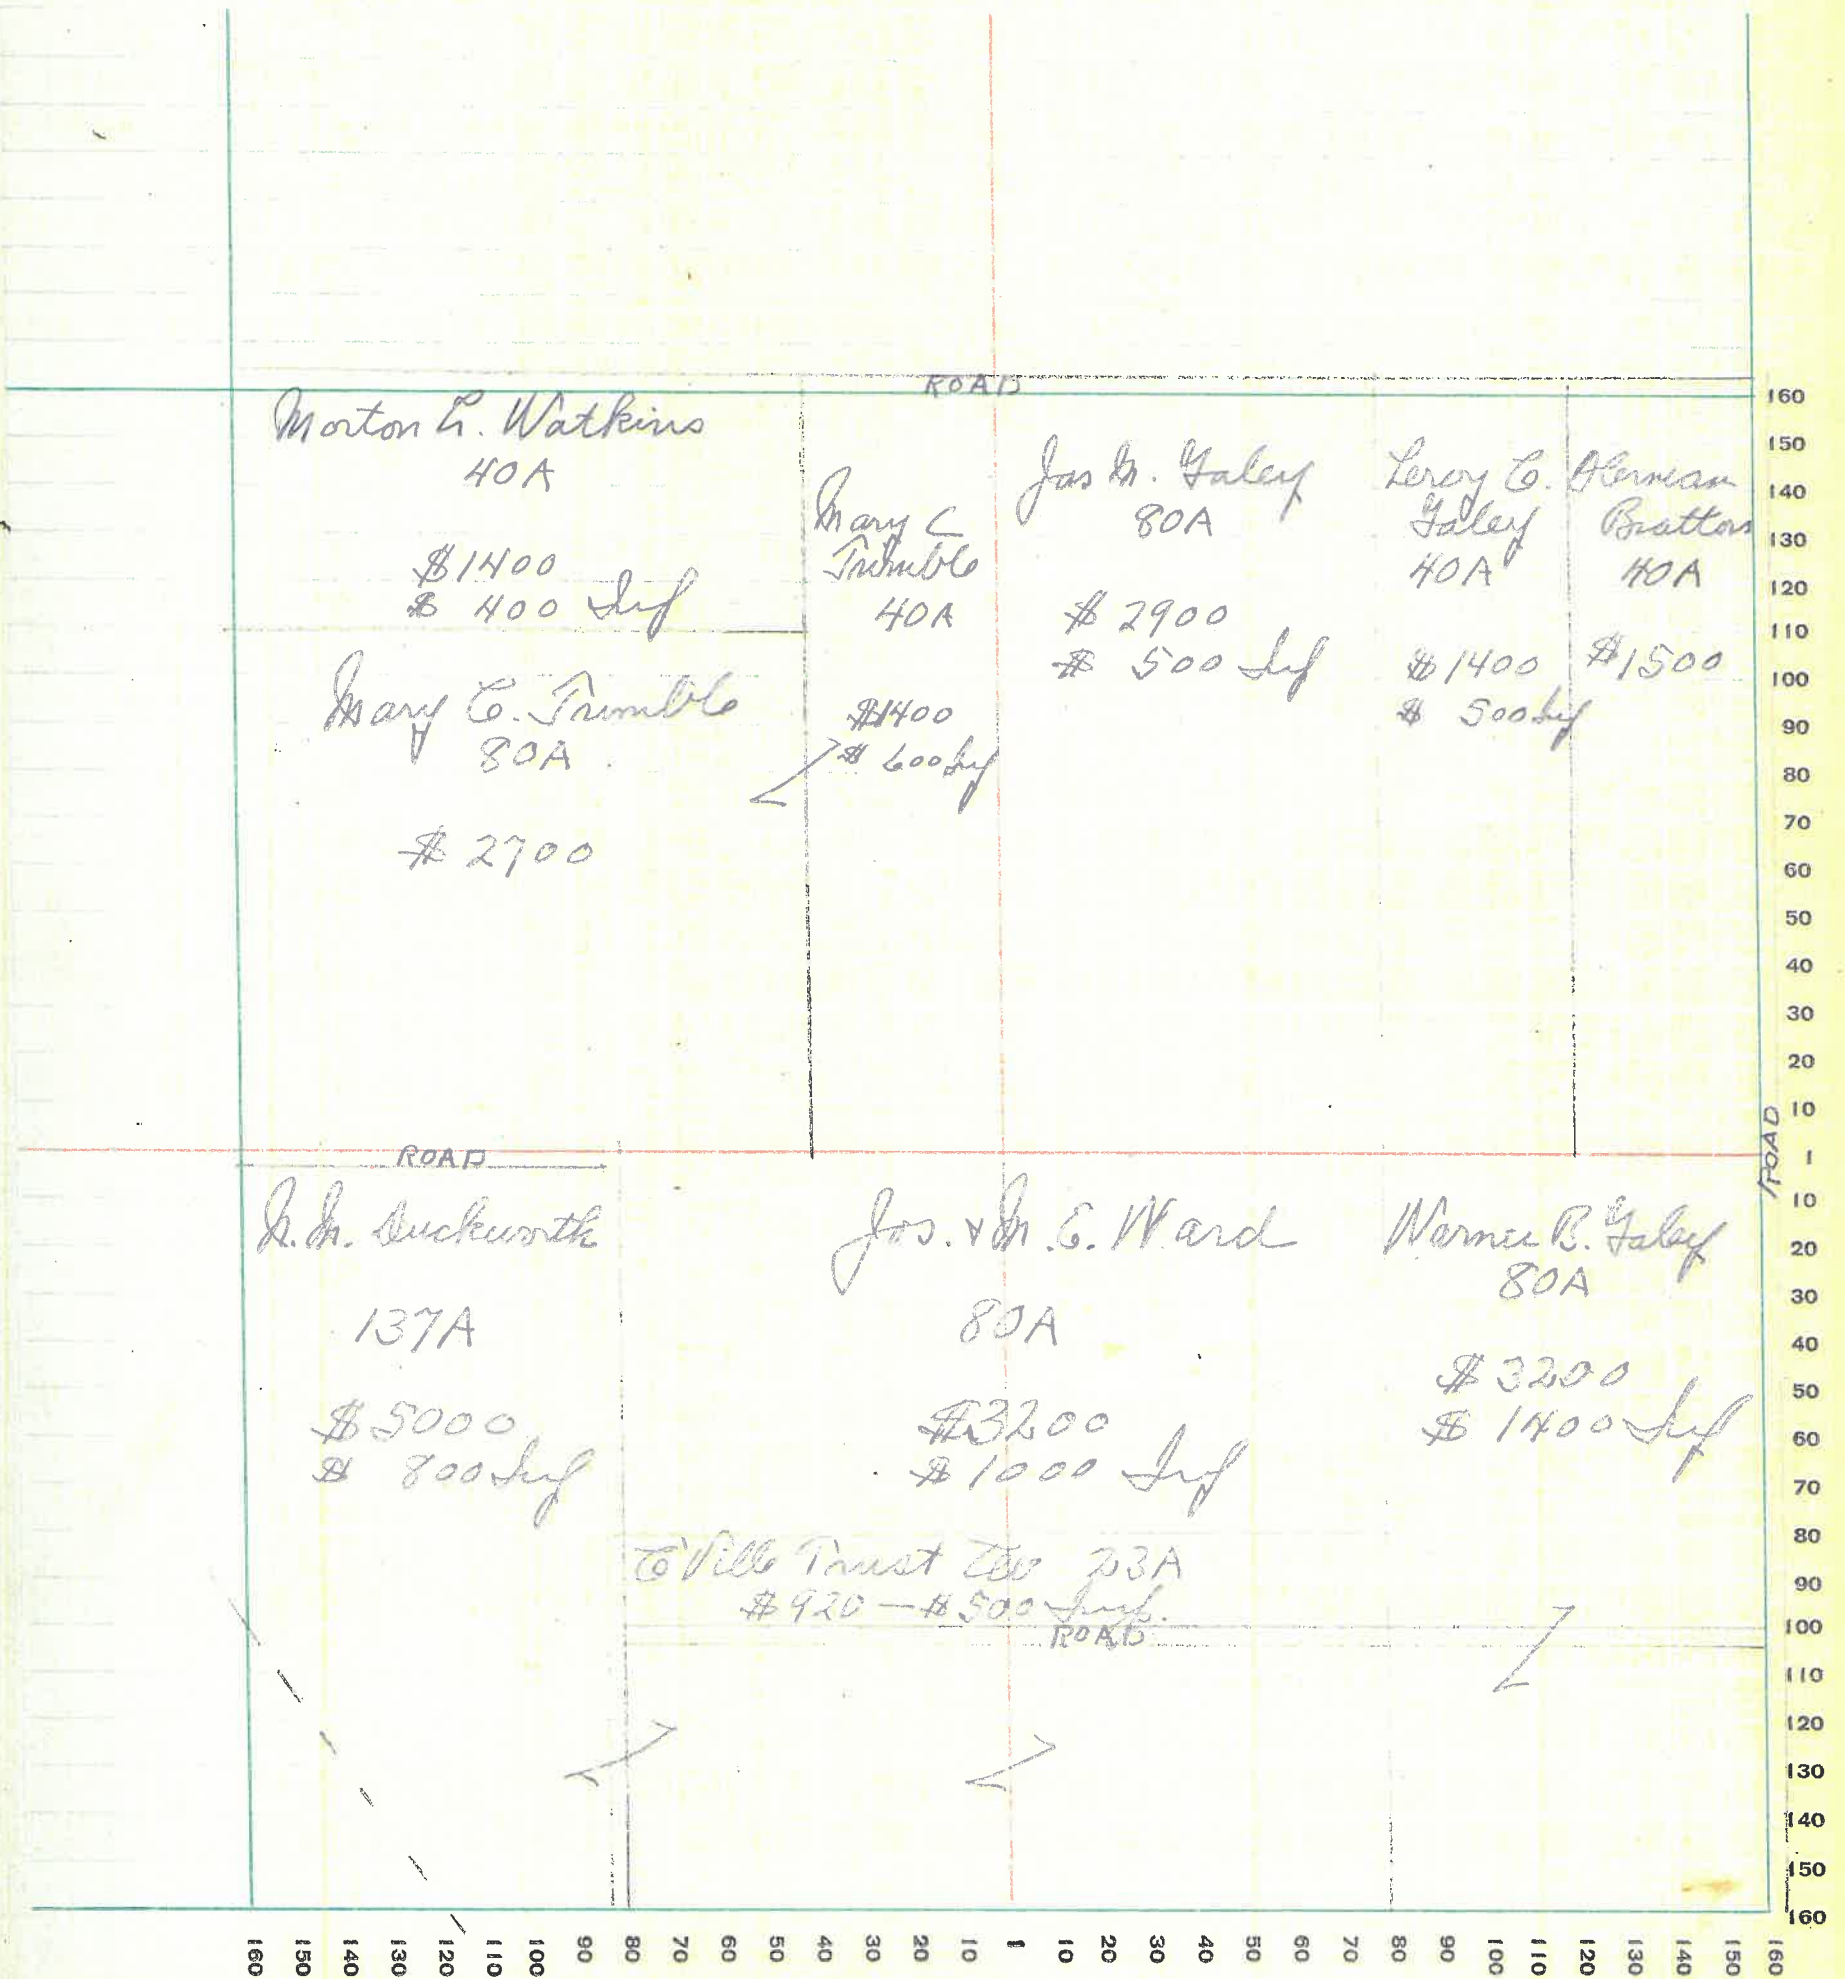 ROAD
Morton L. Watkins
40A
$1400
$ 400 Imp
Mary C. Trimble
80A
$ 2700
Mary C
Trimble
40A
$1400
$ 600 Imp
Jas M. Galey
80A
$ 2900
$ 500 Imp
Leroy C.
Galey
40A
$1400
$ 500 Imp
Herman
Bratton
40A
$1500
160
150
140
130
120
110
100
90
80
70
60
50
40
30
20
10
1
10
20
30
40
50
60
70
80
90
100
110
120
130
140
150
160
ROAD
ROAD
Duckworth
137A
$5000
$ 800 Imp
Jos. & M. E. Ward
80A
$3200
$ 1000 Imp
Warner B. Galey
80A
$ 3200
$ 1400 Imp
C'Ville Trust Co 23A
$920 — $500 Imp.
ROAD
160 150 140 130 120 110 100 90 80 70 60 50 40 30 20 10 1 10 20 30 40 50 60 70 80 90 100 110 120 130 140 150 160